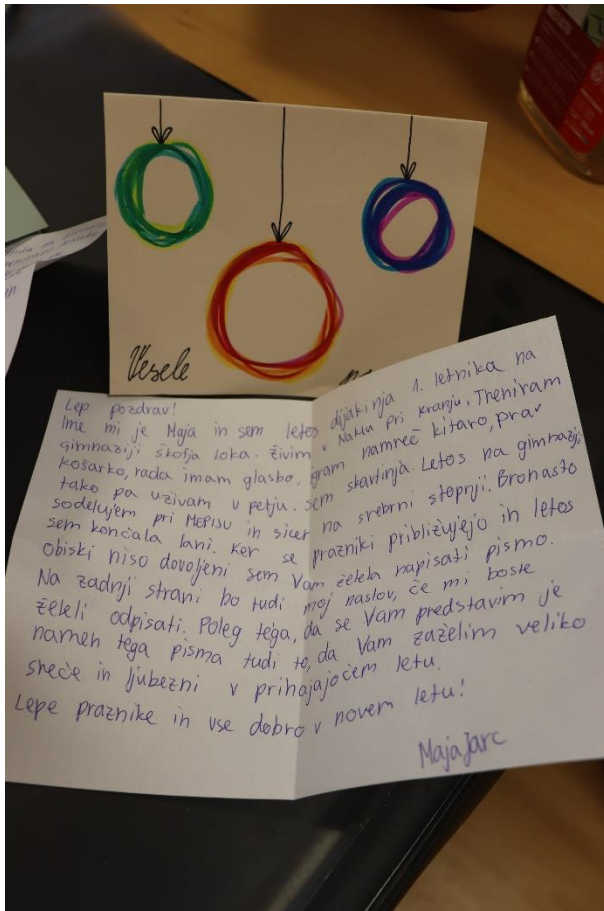 Vesele
Lep pozdrav!
Ime mi je Maja in sem letos dijakinja 1. letnika na
gimnaziji Škofja Loka. Živim v Naklu pri Kranju. Treniram
košarko, rada imam glasbo, igram namreč kitaro, prav
tako pa uživam v petju. Sem skavtinja. Letos na gimnaziji
sodelujem pri MEPISU in sicer na srebrni stopnji. Bronasto
sem končala lani. Ker se prazniki približujejo in letos
obiski niso dovoljeni sem Vam želela napisati pismo.
Na zadnji strani bo tudi moj naslov, če mi boste
želeli odpisati. Poleg tega, da se Vam predstavim je
namen tega pisma tudi to, da Vam zaželim veliko
sreče in ljubezni v prihajajočem letu.
Lepe praznike in vse dobro v novem letu!
Maja Jarc